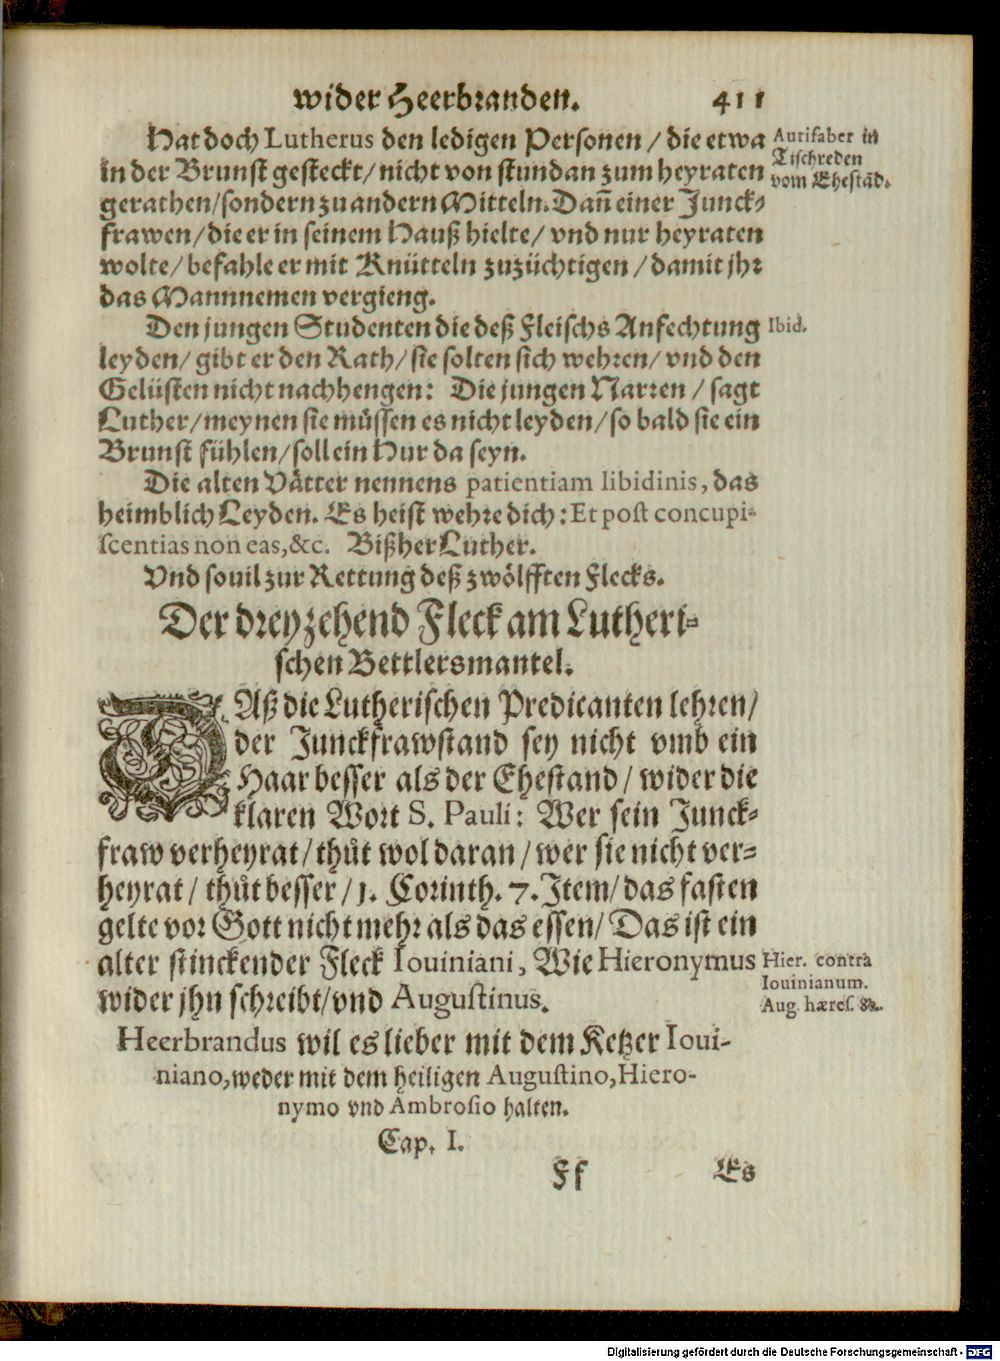 wider Heerbranden. 411
Hat doch Lutherus den ledigen Personen / die etwa
in der Brunst gesteckt / nicht von stundan zum heyraten
gerathen / sondern zu andern Mitteln. Dañ einer Junck-
frawen / die er in seinem Hauß hielte / vnd nur heyraten
wolte / befahle er mit Knütteln zuzüchtigen / damit jhr
das Mannnemen vergieng.
Aurifaber in
Tischreden
vom Ehestãd.
Den jungen Studenten die deß Fleischs Anfechtung
leyden / gibt er den Rath / sie solten sich wehren / vnd den
Gelüsten nicht nachhengen: Die jungen Narren / sagt
Luther / meynen sie müssen es nicht leyden / so bald sie ein
Brunst fühlen / soll ein Hur da seyn.
Ibid.
Die alten Vätter nennens patientiam libidinis, das
heimblich Leyden. Es heist wehre dich: Et post concupi-
scentias non eas, &c. Bißher Luther.
Vnd souil zur Rettung deß zwölfften Flecks.
Der dreyzehend Fleck am Lutheri-
schen Bettlersmantel.
DAß die Lutherischen Predicanten lehren /
der Junckfrawstand sey nicht vmb ein
Haar besser als der Ehestand / wider die
klaren Wort S. Pauli: Wer sein Junck-
fraw verheyrat / thůt wol daran / wer sie nicht ver-
heyrat / thůt besser / 1. Corinth. 7. Item / das fasten
gelte vor Gott nicht mehr als das essen / Das ist ein
alter stinckender Fleck Iouiniani, Wie Hieronymus
wider jhn schreibt / vnd Augustinus.
Hier. contra
Iouinianum.
Aug. hæres. 82.
Heerbrandus wil es lieber mit dem Ketzer Ioui-
niano, weder mit dem heiligen Augustino, Hiero-
nymo vnd Ambrosio halten.
Cap. I.
Ff Es
Digitalisierung gefördert durch die Deutsche Forschungsgemeinschaft - DFG